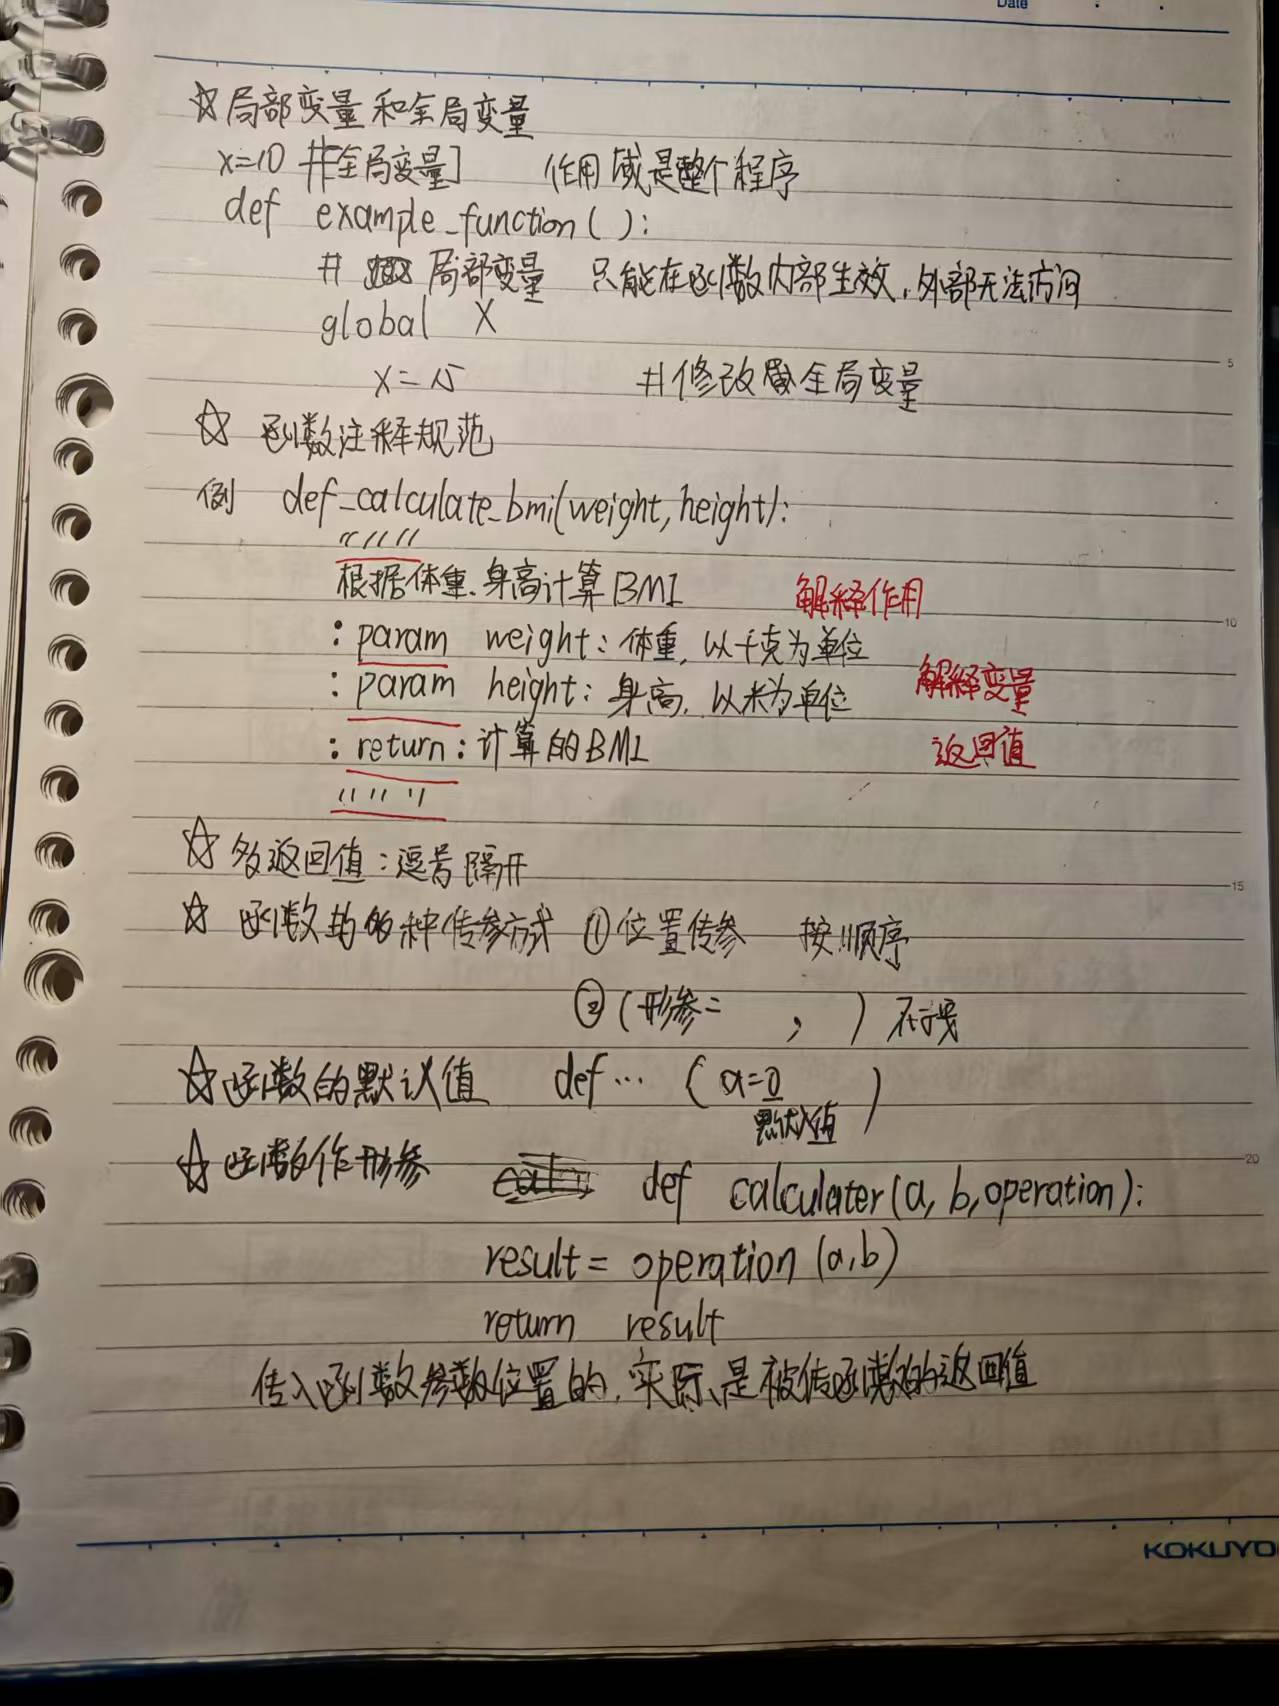 Date
☆局部变量和全局变量
x=10 #[全局变量] 作用域是整个程序
def example_function():
# 局部变量 只能在函数内部生效,外部无法访问
global X
x=15 #修改 全局变量
☆ 函数注释规范
例 def_calculate_bmi(weight,height):
"""
根据体重、身高计算BMI 解释作用
:param weight:体重,以千克为单位
:param height:身高,以米为单位 解释变量
:return:计算的BMI 返回值
"""
☆ 多返回值:逗号隔开
☆ 函数的多种传参方式 ①位置传参 按顺序
②(形参= , )
☆函数的默认值 def… (a=0 )
默认值
☆函数作形参 def calculater(a,b,operation):
result= operation(a,b)
return result
传入函数参数位置的,实际是被传函数的返回值
5
10
15
20
KOKUYO